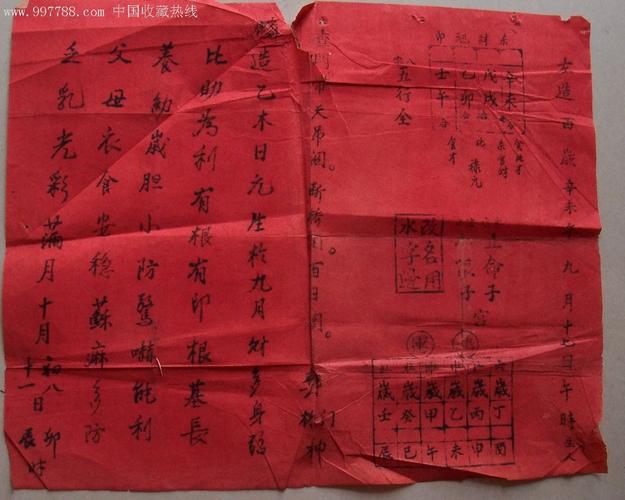 www.997788.com 中国收藏热线
女造 西歲 辛未年九月十七日午時生人
杀 財 旭 印
辛未
戊戌
乙卯
壬午
祿元
八字五行全
立命子宮
改名用
水字边
歲丁酉
歲丙申
歲乙未
歲甲午
歲癸巳
歲壬辰
查明 带天吊關。断桥關。百日關。
造乙木日元生於九月財多身弱
比助為利有根有印根基長
養幼歲胆小防驚嚇能利
父母衣食安稳蘇麻多防
乏乳光彩滿月十月初八卯
十一日辰時